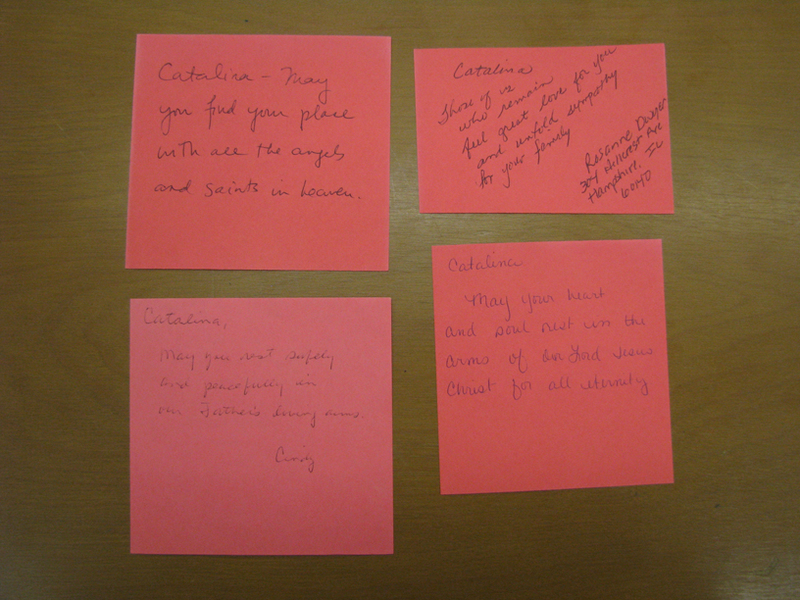 Catalina – May
you find your place
with all the angels
and saints in heaven.
Catalina
Those of us
who remain
feel great love for you
and untold sympathy
for your family
Rosanne Dwyer
304 Hillcrest Ave
Hampshire, IL
60140
Catalina,
May you rest safely
and peacefully in
our Father's loving arms.
Cindy
Catalina
May your heart
and soul rest in the
arms of our Lord Jesus
Christ for all eternity